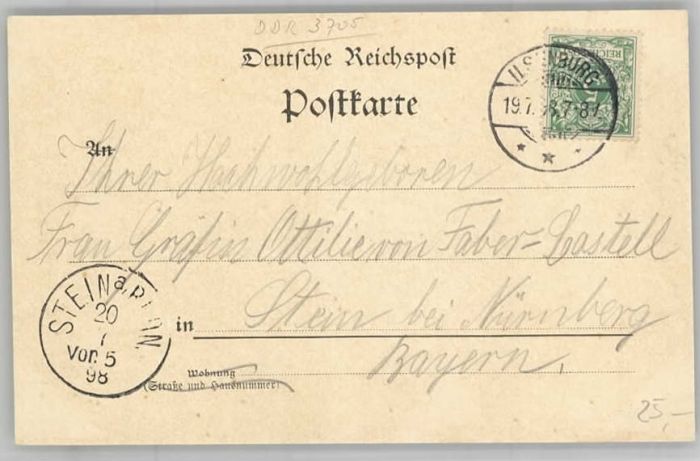 DDR 3705
Deutsche Reichspost
Postkarte
ILSENBURG
19.7.98.7-8V.
An
Ihrer Hochwohlgeboren
Frau Gräfin Ottilie von Faber-Castell
in Stein bei Nürnberg
Bayern.
Wohnung
(Straße und Hausnummer)
STEIN a/
20
7
Vor. 5
98
25,-